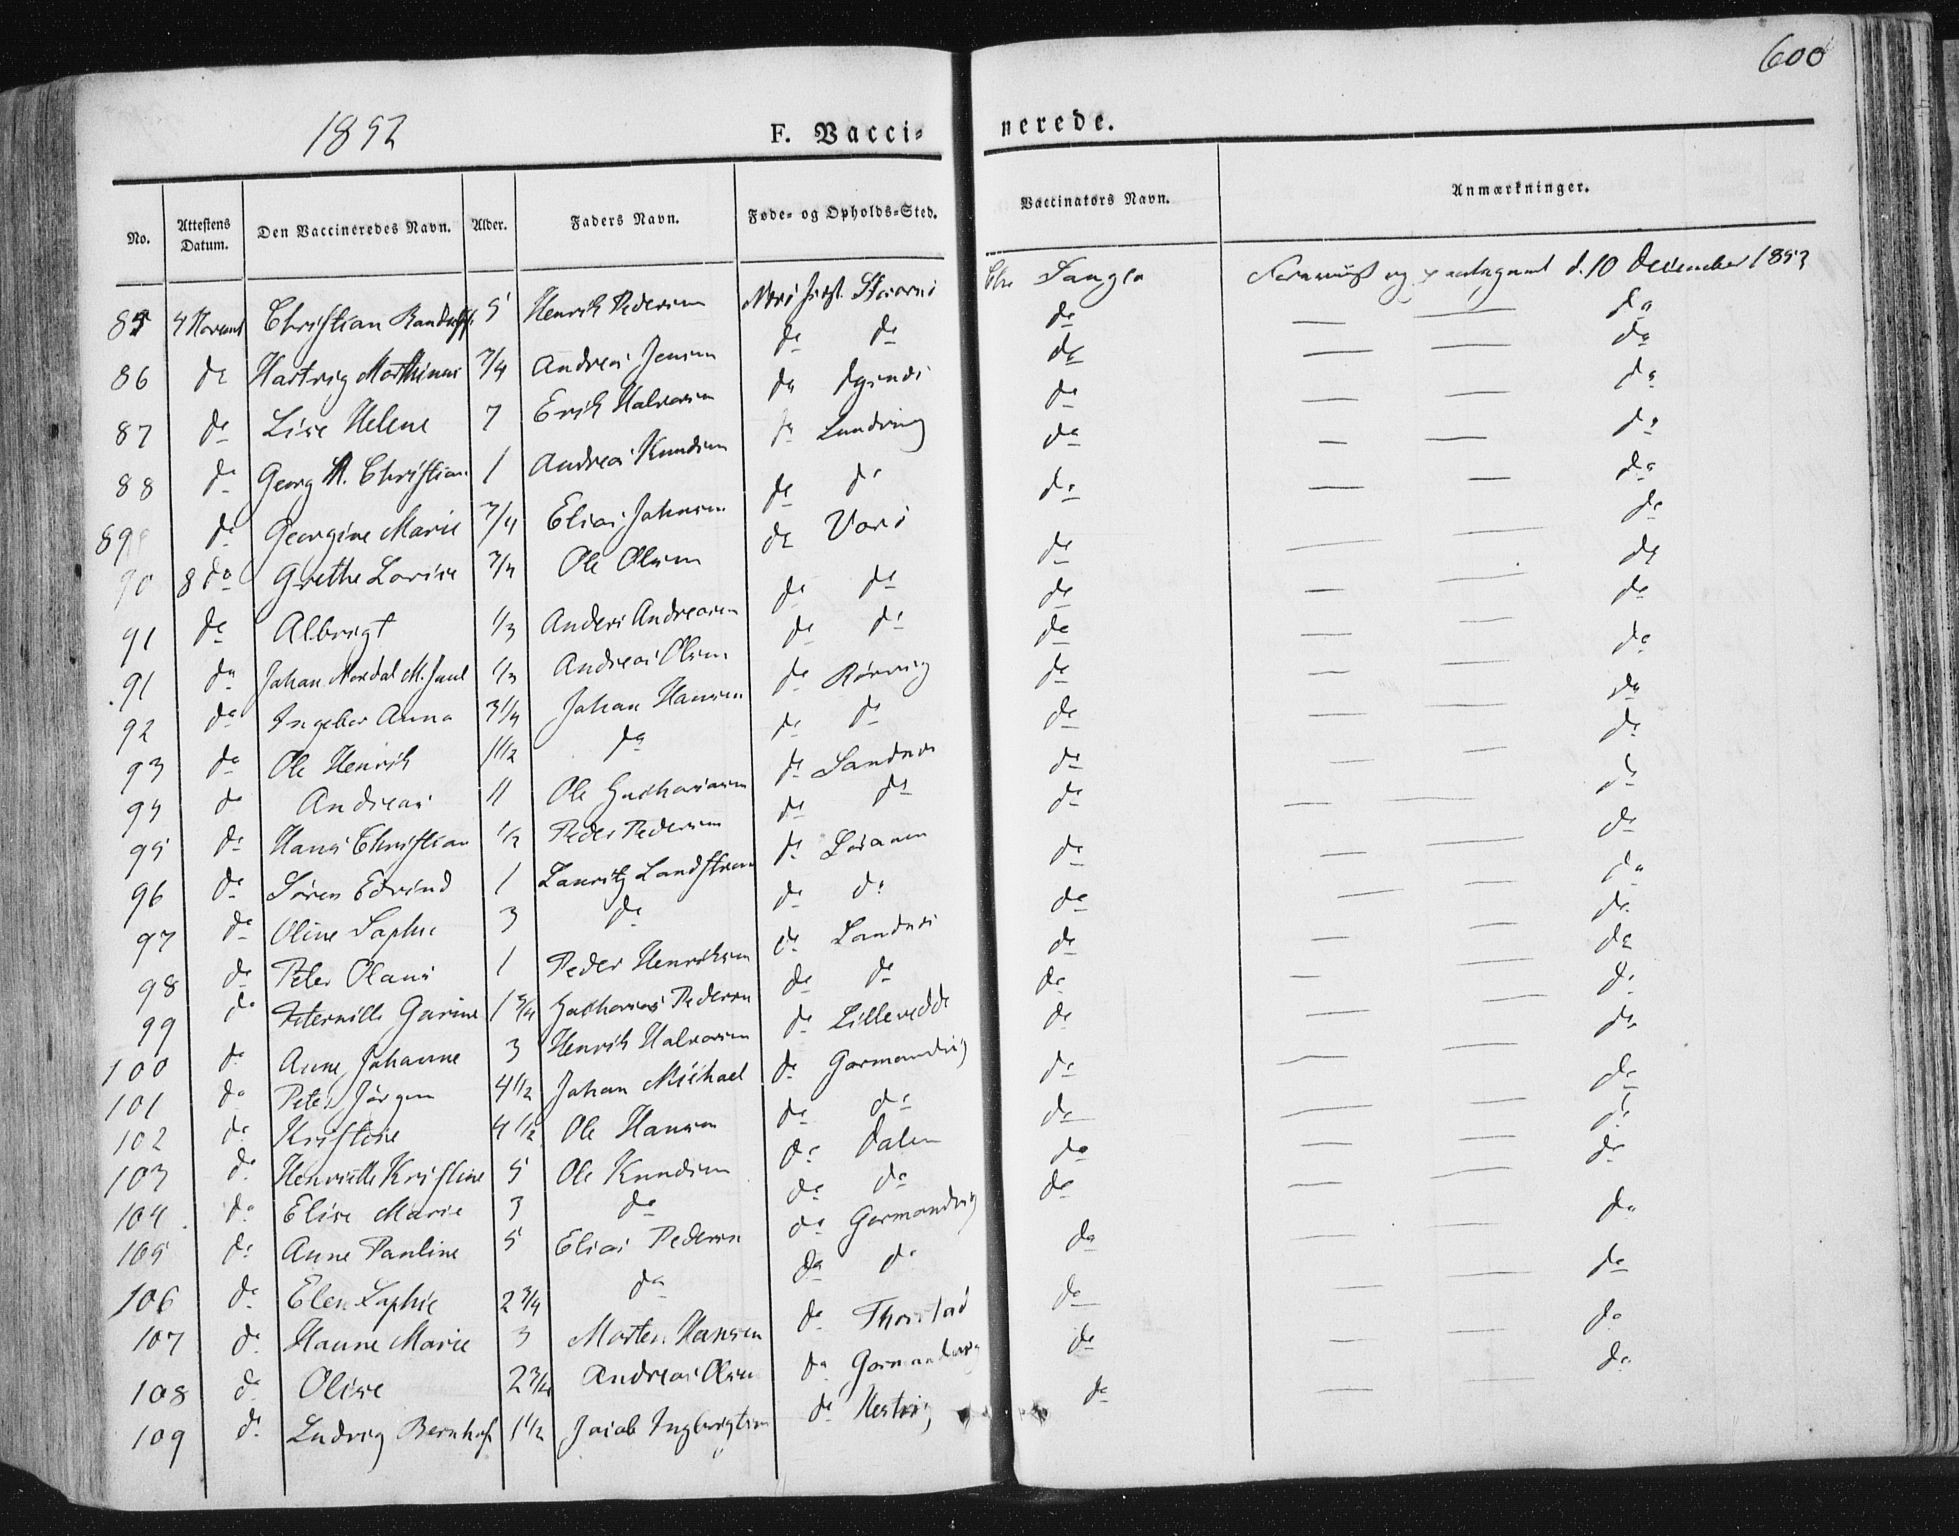 600
1852
F. Vaccinerede.
No. Attestens Datum. Den Vaccineredes Navn. Alder. Faders Navn. Føde- og Opholds-Sted. Vaccinators Navn. Anmærkninger.
85 4 Novemb Christian 5 Henrik Pedersen d. 10 December 1853
86 do Hartvig Mathinus 3/4 Andreas Jensen do do do — — do
87 do Lise Helene 7 Erik Halvorsen do do — — do
88 do Georg A. Christian 1 Andreas Knudsen do Lundring do — — do
89 do Georgine Marie 3/4 Elias Johnsen do do do — — do
90 8 do Grethe Lovise 3/4 Ole Olsen do do — — do
91 do Albrigt 1/3 Anders Andreasen do do do — — do
91 do Johan Nordal M. Juul 1/3 Andreas Olsen do do do — — do
92 do Ingebor Anna 3 1/4 Johan Hansen do Rørvig do — — do
93 do Ole Henrik 1 1/2 do do do do — — do
94 do Andreas 11 Ole Zachariasen do Sandnes do — — do
95 do Hans Christian 1/2 Peder Pedersen do do do — — do
96 do Søren Edvind 1 Lauritz Landstrøm do do — — do
97 do Oline Sophie 3 do do do do — — do
98 do Peter Olaus 1 Peder Henriksen do Sandnes do — — do
99 do Peternille Garine 1 3/4 Zacharias Pedersen do do do — — do
100 do Anne Johanne 3 Henrik Halvorsen do do — — do
101 do Peter Jørgen 4 1/2 Johan Michael do Garmandvig do — — do
102 do Kristine 4 1/2 Ole Hansen do do do — — do
103 do Henriette Kristine 5 Ole Knudsen do Dalen do — — do
104 do Elise Marie 3 do do do do — — do
105 do Anne Pauline 5 Elias Pedersen do Garmandvig do — — do
106 do Elen Sophie 2 3/4 do do do do — — do
107 do Hanne Marie 3 Morten Hansen do do — — do
108 do Olise 2 3/4 Andreas Olsen do Garmandvig do — — do
109 do Ludvig Bernhof 1 1/2 Jacob Ingbrigtsen do Hestvig do — — do